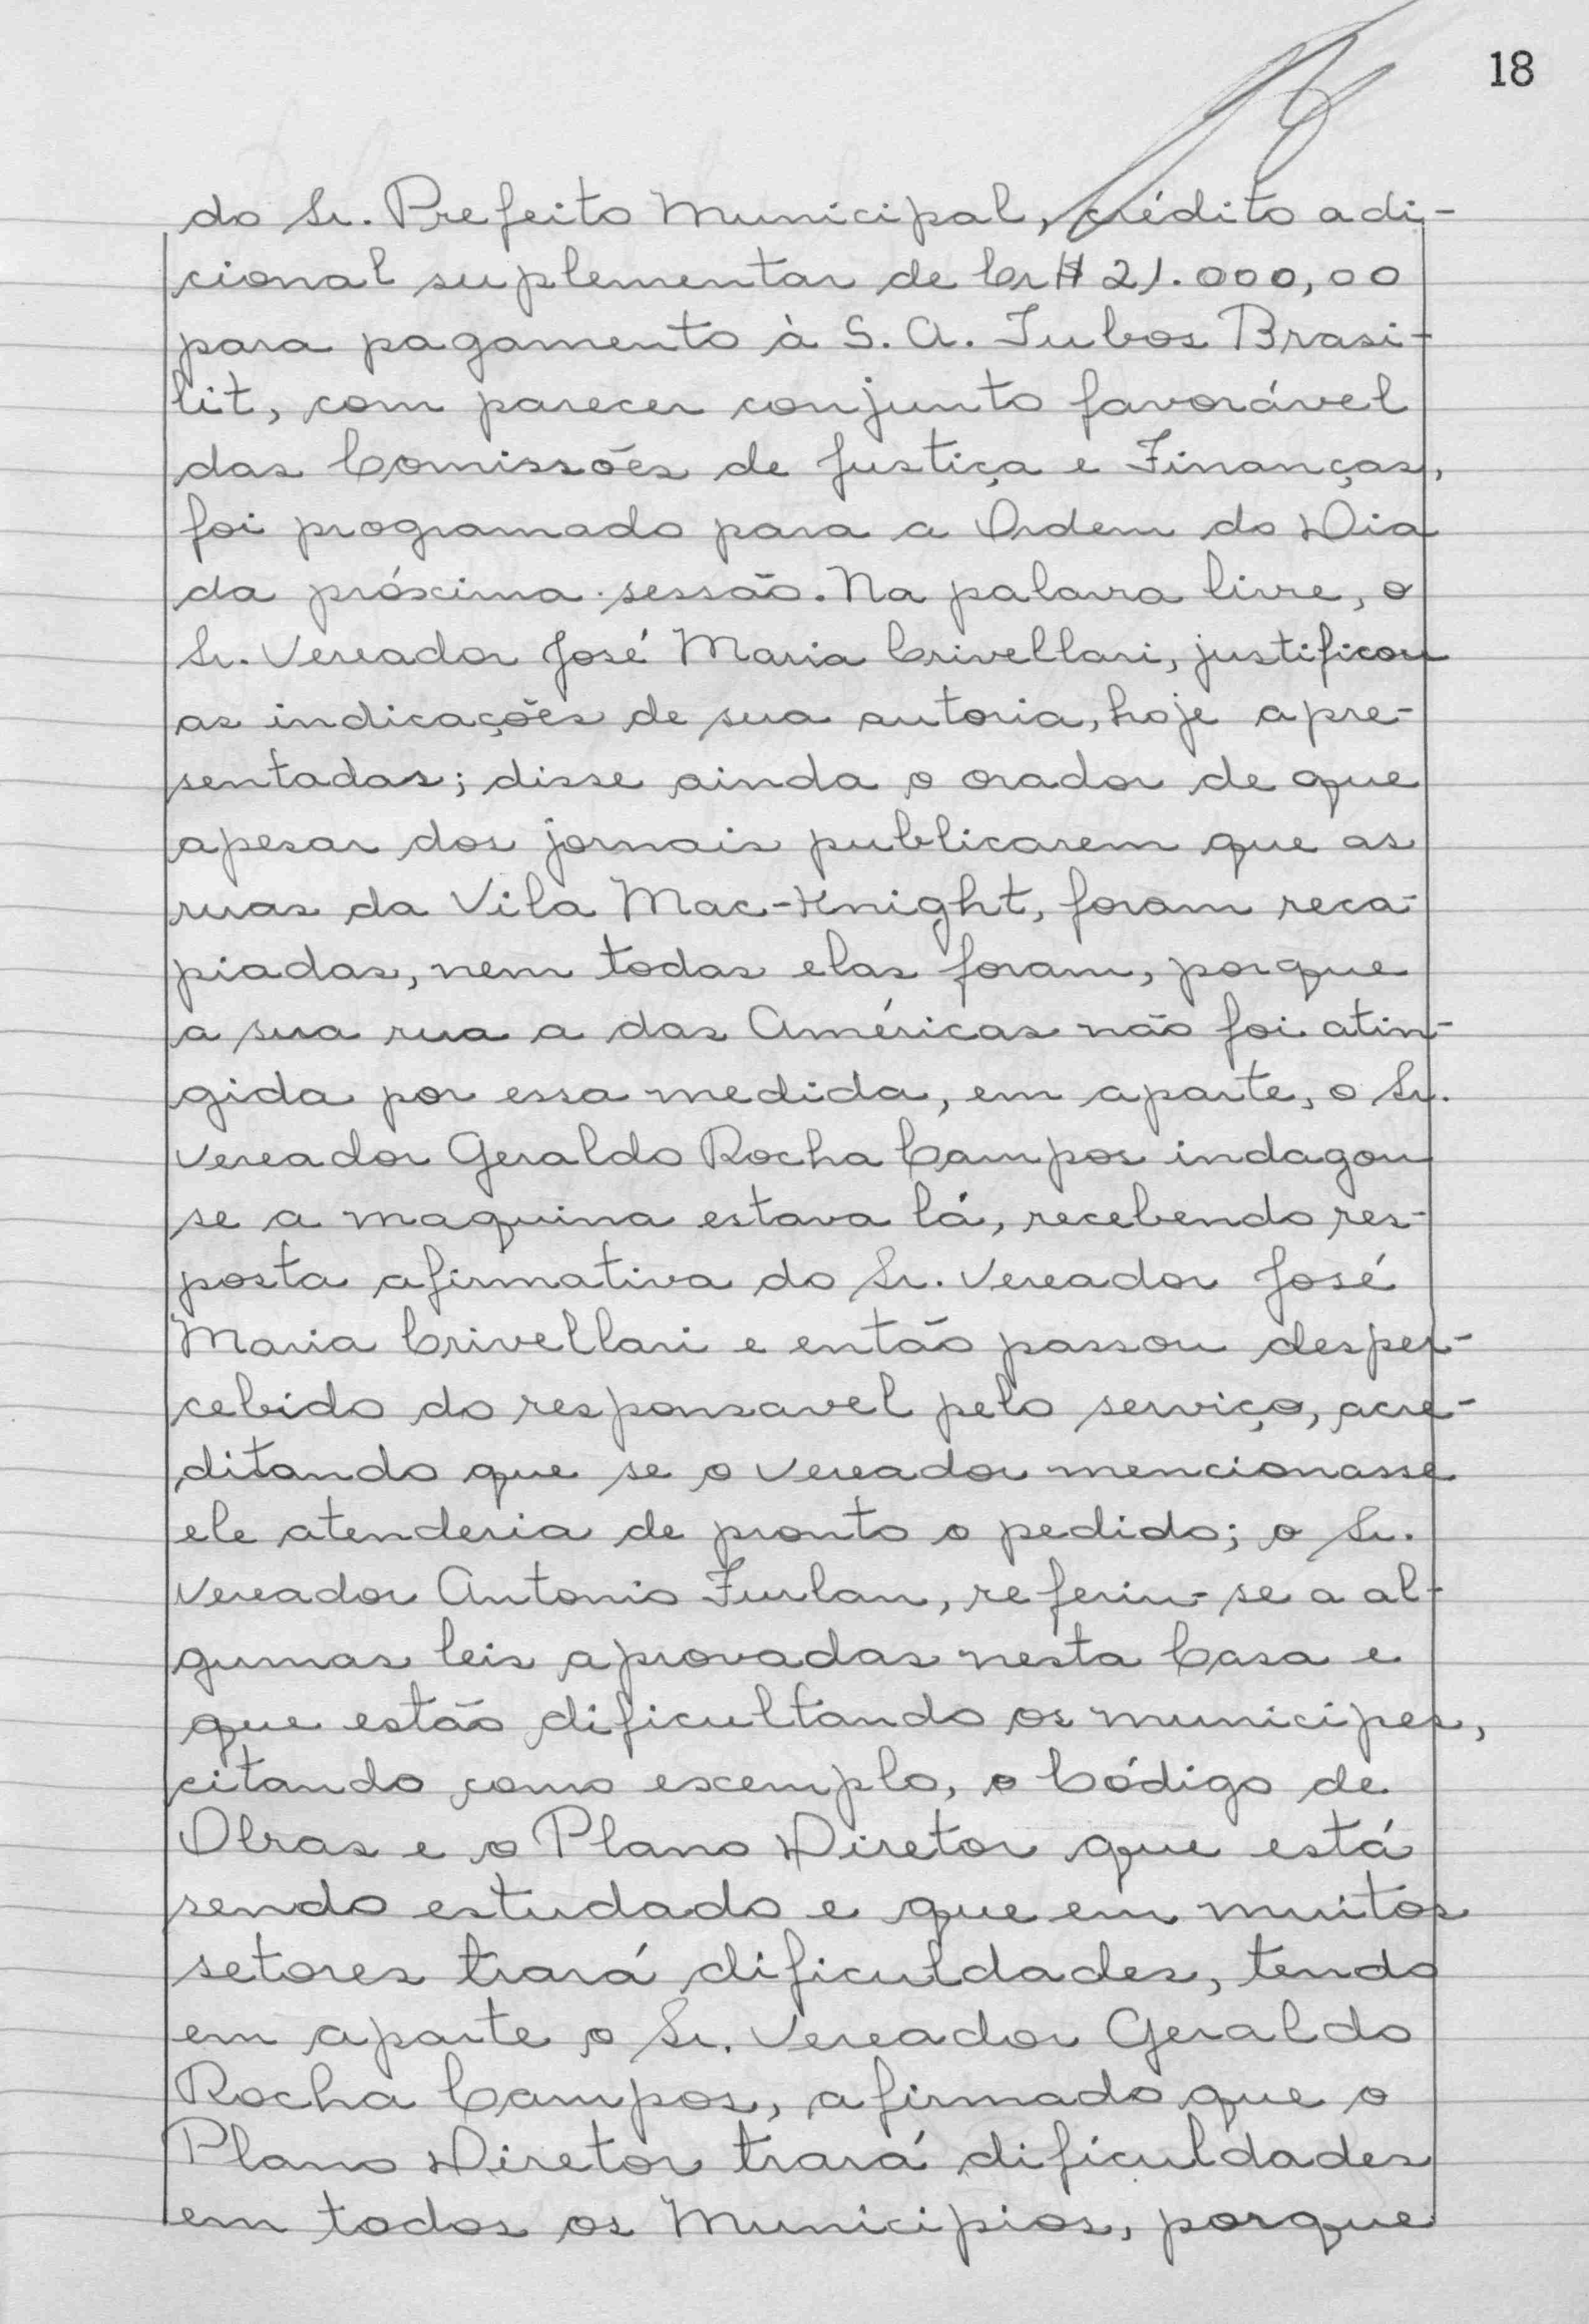 18
do Sr. Prefeito Municipal, crédito adi-
cional suplementar de Cr$ 21.000,00
para pagamento à S. A. Tubos Brasi-
lit, com parecer conjunto favorável
das Comissões de Justiça e Finanças,
foi programado para a Ordem do Dia
da próxima sessão. Na palavra livre, o
Sr. Vereador José Maria Crivellari, justificou
as indicações de sua autoria, hoje apre-
sentadas; disse ainda o orador de que
apesar dos jornais publicarem que as
ruas da Vila Mac-Knight, foram reca-
piadas, nem todas elas foram, porque
a sua rua a das Américas não foi atin-
gida por essa medida, em aparte, o Sr.
Vereador Geraldo Rocha Campos indagou
se a maquina estava lá, recebendo res-
posta afirmativa do Sr. Vereador José
Maria Crivellari e então passou desper-
cebido do responsavel pelo serviço, acre-
ditando que se o Vereador mencionasse
ele atenderia de pronto o pedido; o Sr.
Vereador Antonio Furlan, referiu-se a al-
gumas leis aprovadas nesta Casa e
que estão dificultando os municipes,
citando como exemplo, o Código de
Obras e o Plano Diretor que está
sendo estudado e que em muitos
setores trará dificuldades, tendo
em aparte o Sr. Vereador Geraldo
Rocha Campos, afirmado que o
Plano Diretor trará dificuldades
em todos os Municipios, porque